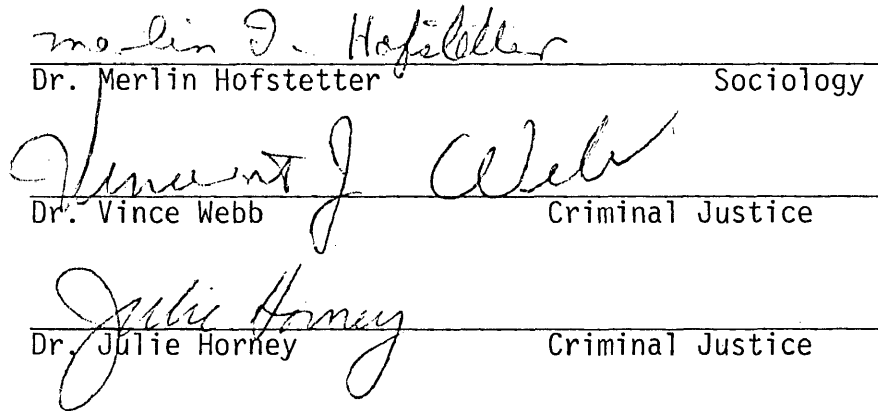 Merlin J. Hofstetter
Dr. Merlin Hofstetter Sociology
Vincent J Webb
Dr. Vince Webb Criminal Justice
Julie Horney
Dr. Julie Horney Criminal Justice